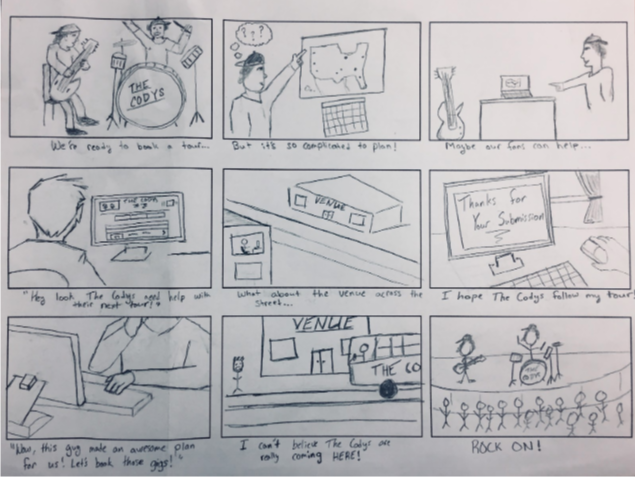 THE
CODYS
We're ready to book a tour...
? ? ?
But it's so complicated to plan!
Maybe our fans can help...
"Hey look The Codys need help with
their next tour!"
VENUE
What about the venue across the
street...
Thanks for
Your Submission
I hope The Codys follow my tour!
"Wow, this guy made an awesome plan
for us! Let's book those gigs!"
VENUE
THE CO
I can't believe The Codys are
really coming HERE!
THE
CODYS
ROCK ON!